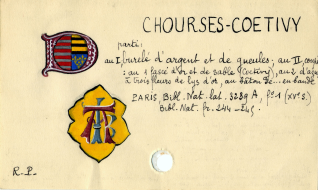 CHOURSES-COETIVY
parti:
au I burelé d'argent et de gueules; au II coupé
: au 1 fascé d'or et de sable (Coëtivy), au 2 d'azur
à trois fleurs de lys d'or, au bâton de... en bande
PARIS Bibl. Nat. lat. 3239 A, f° 1 (XVe s.)
Bibl. Nat. fr. 244-245
R.P.